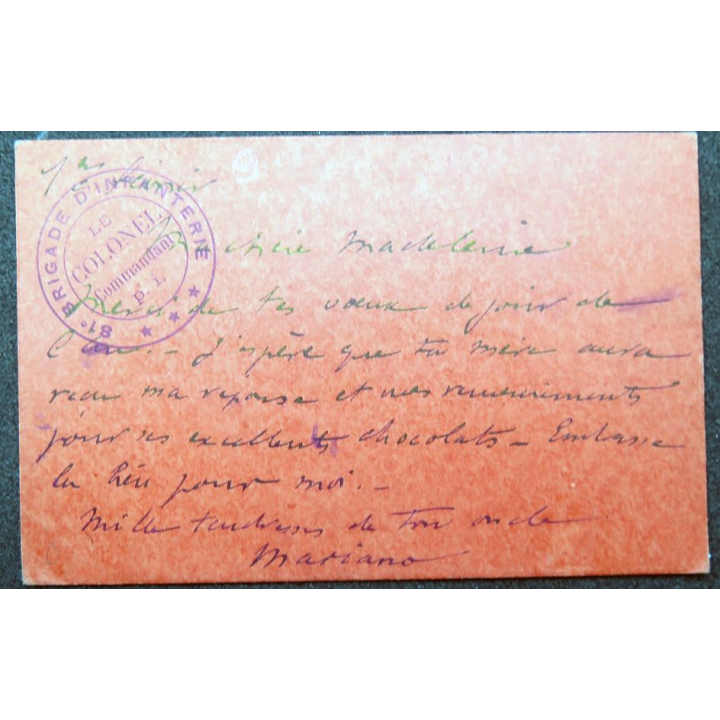 1er février
81e BRIGADE D'INFANTERIE
LE
COLONEL
Commandant
p. i.
Ma chère Madeleine
Merci de tes vœux de jour de
l'an. - J'espère que ta mère aura
reçu ma réponse et mes remerciements
pour ses excellents chocolats - Embrasse
la pour moi. -
Mille tendresses de ton oncle
Mariano